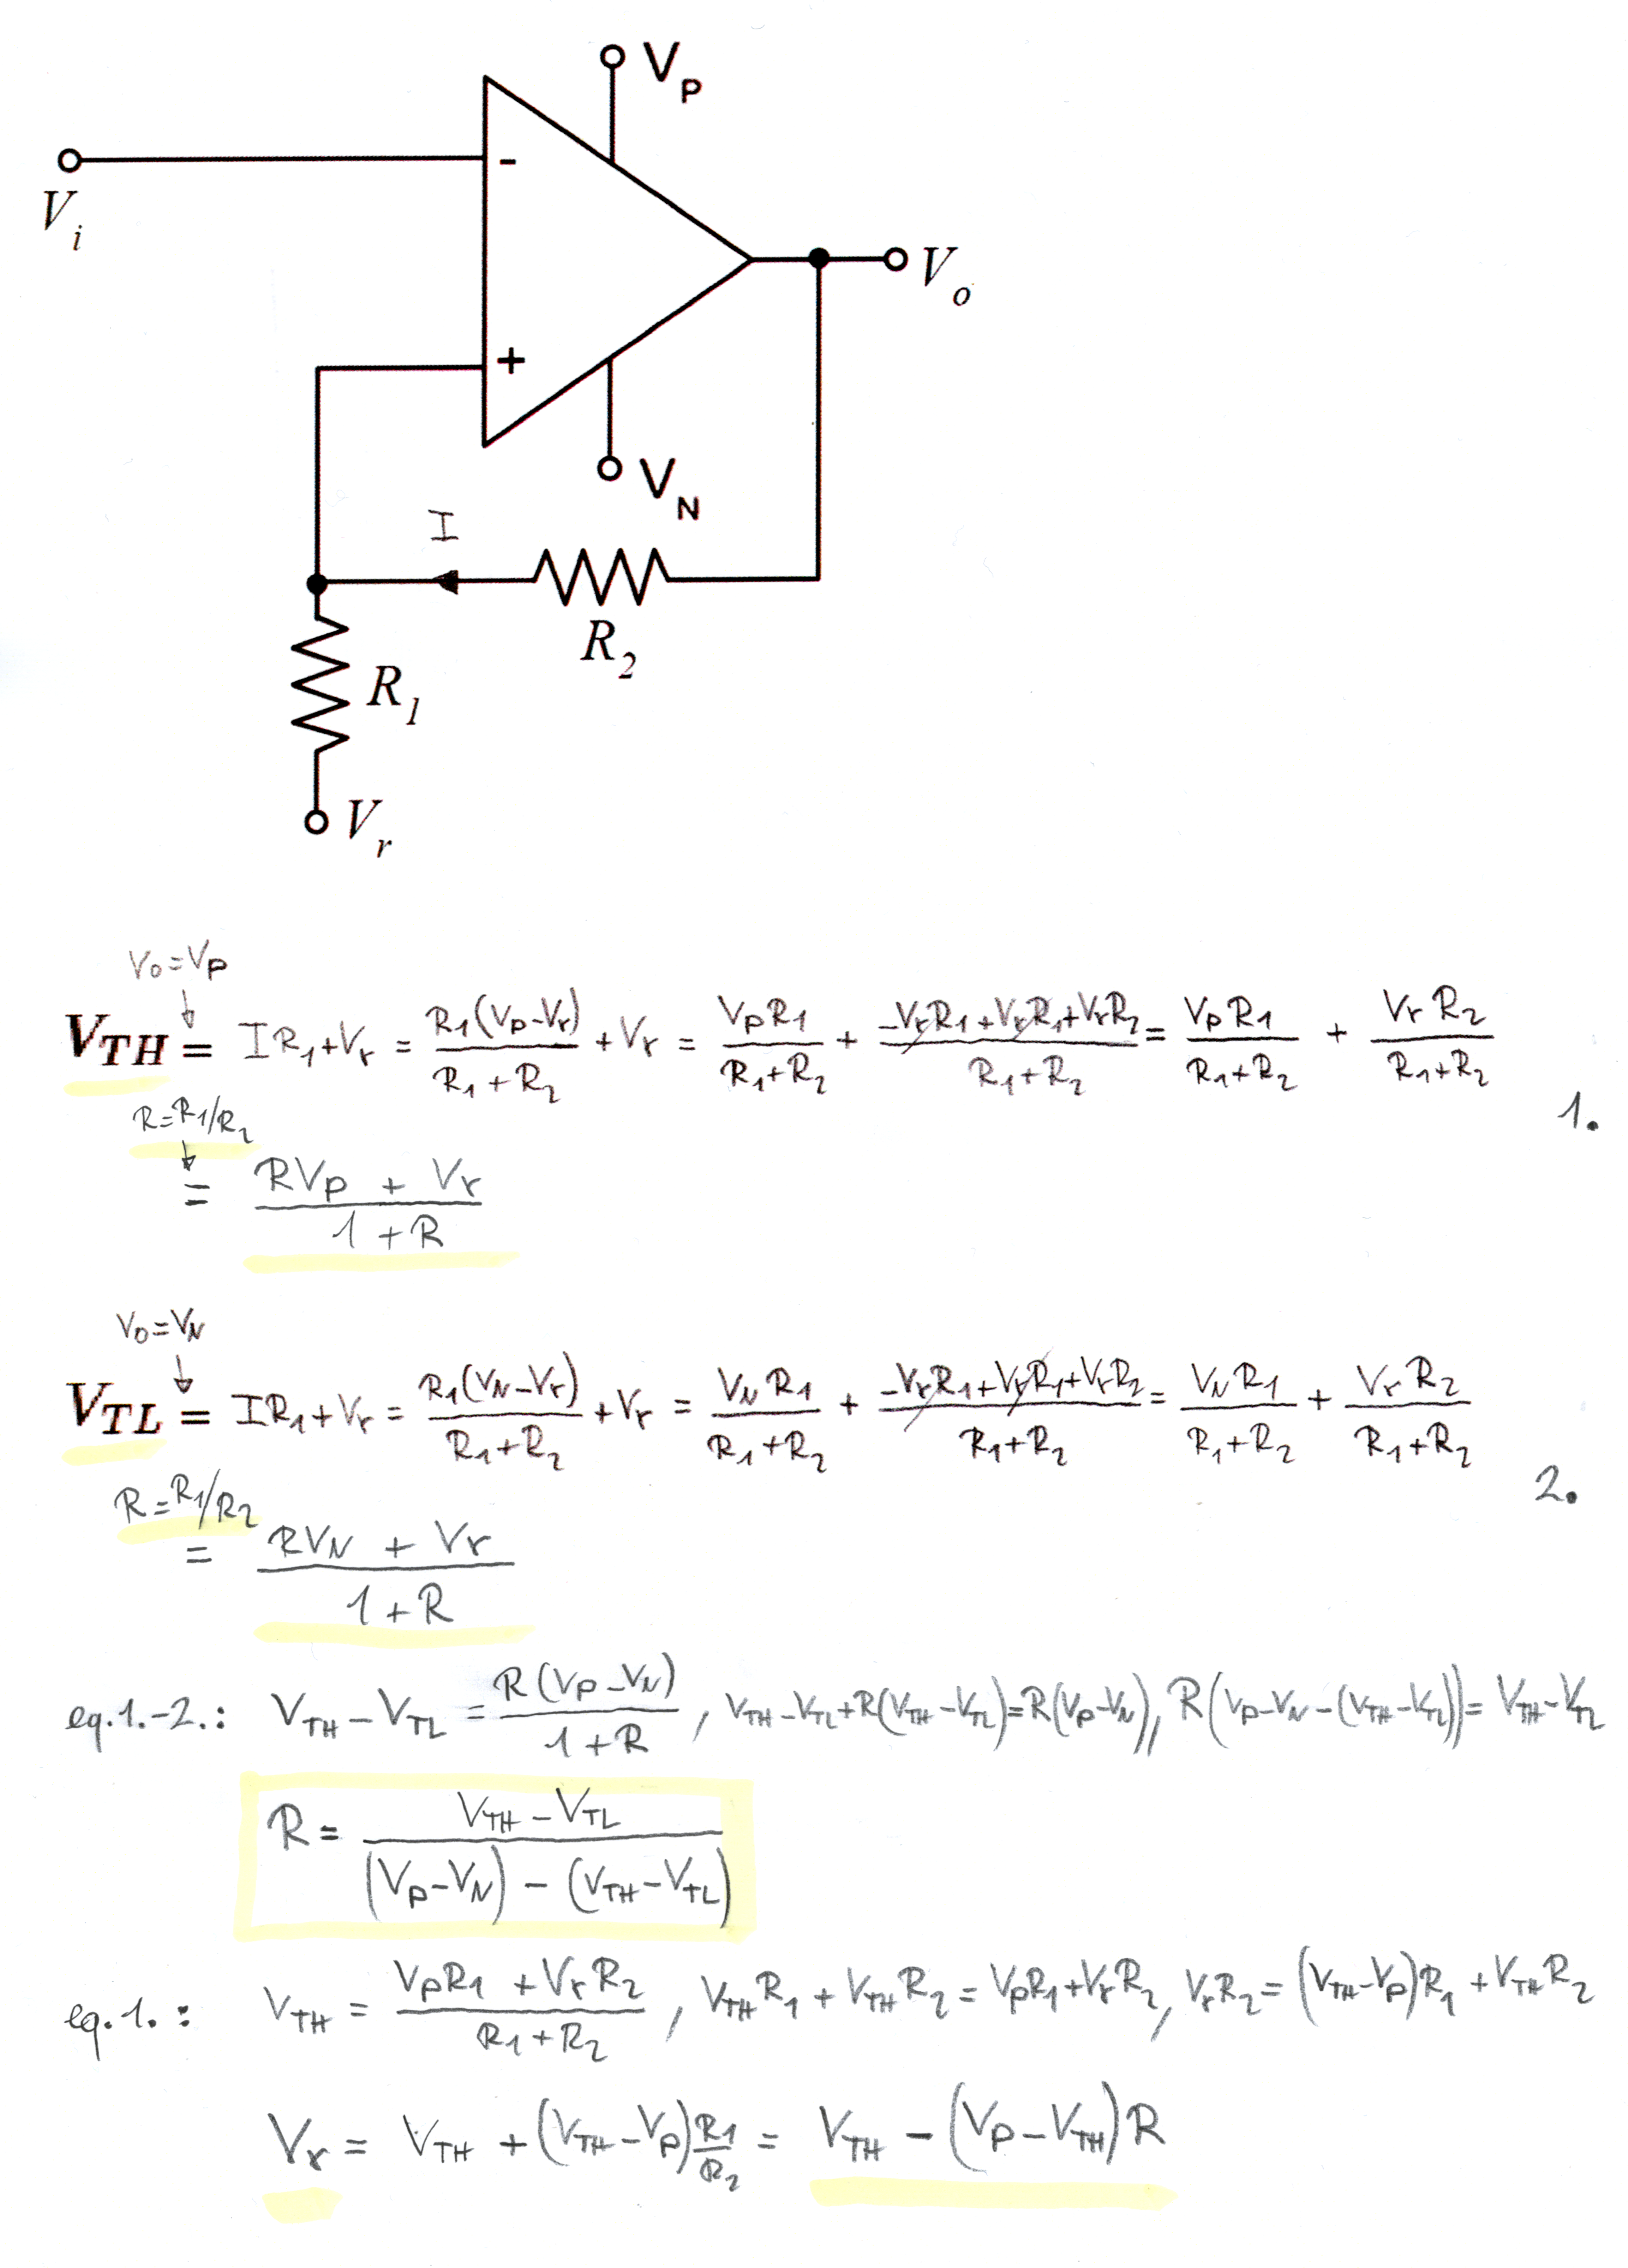 V_P
-
V_i
V_o
+
V_N
I
R_2
R_1
V_r
V_O = V_P
↓
V_TH = IR_1 + V_r = R_1(V_P - V_r) / (R_1 + R_2) + V_r = V_P R_1 / (R_1 + R_2) + (-V_r R_1 + V_r R_1 + V_r R_2) / (R_1 + R_2) = V_P R_1 / (R_1 + R_2) + V_r R_2 / (R_1 + R_2)
1.
R = R_1/R_2
↓
= (RV_P + V_r) / (1 + R)
V_O = V_N
↓
V_TL = IR_1 + V_r = R_1(V_N - V_r) / (R_1 + R_2) + V_r = V_N R_1 / (R_1 + R_2) + (-V_r R_1 + V_r R_1 + V_r R_2) / (R_1 + R_2) = V_N R_1 / (R_1 + R_2) + V_r R_2 / (R_1 + R_2)
2.
R = R_1/R_2
= (RV_N + V_r) / (1 + R)
eq.1.-2.: V_TH - V_TL = R(V_P - V_N) / (1 + R) , V_TH - V_TL + R(V_TH - V_TL) = R(V_P - V_N) ,, R(V_P - V_N - (V_TH - V_TL)) = V_TH - V_TL
R = (V_TH - V_TL) / ((V_P - V_N) - (V_TH - V_TL))
eq.1.: V_TH = (V_P R_1 + V_r R_2) / (R_1 + R_2) , V_TH R_1 + V_TH R_2 = V_P R_1 + V_r R_2 , V_r R_2 = (V_TH - V_P)R_1 + V_TH R_2
V_r = V_TH + (V_TH - V_P) R_1/R_2 = V_TH - (V_P - V_TH)R